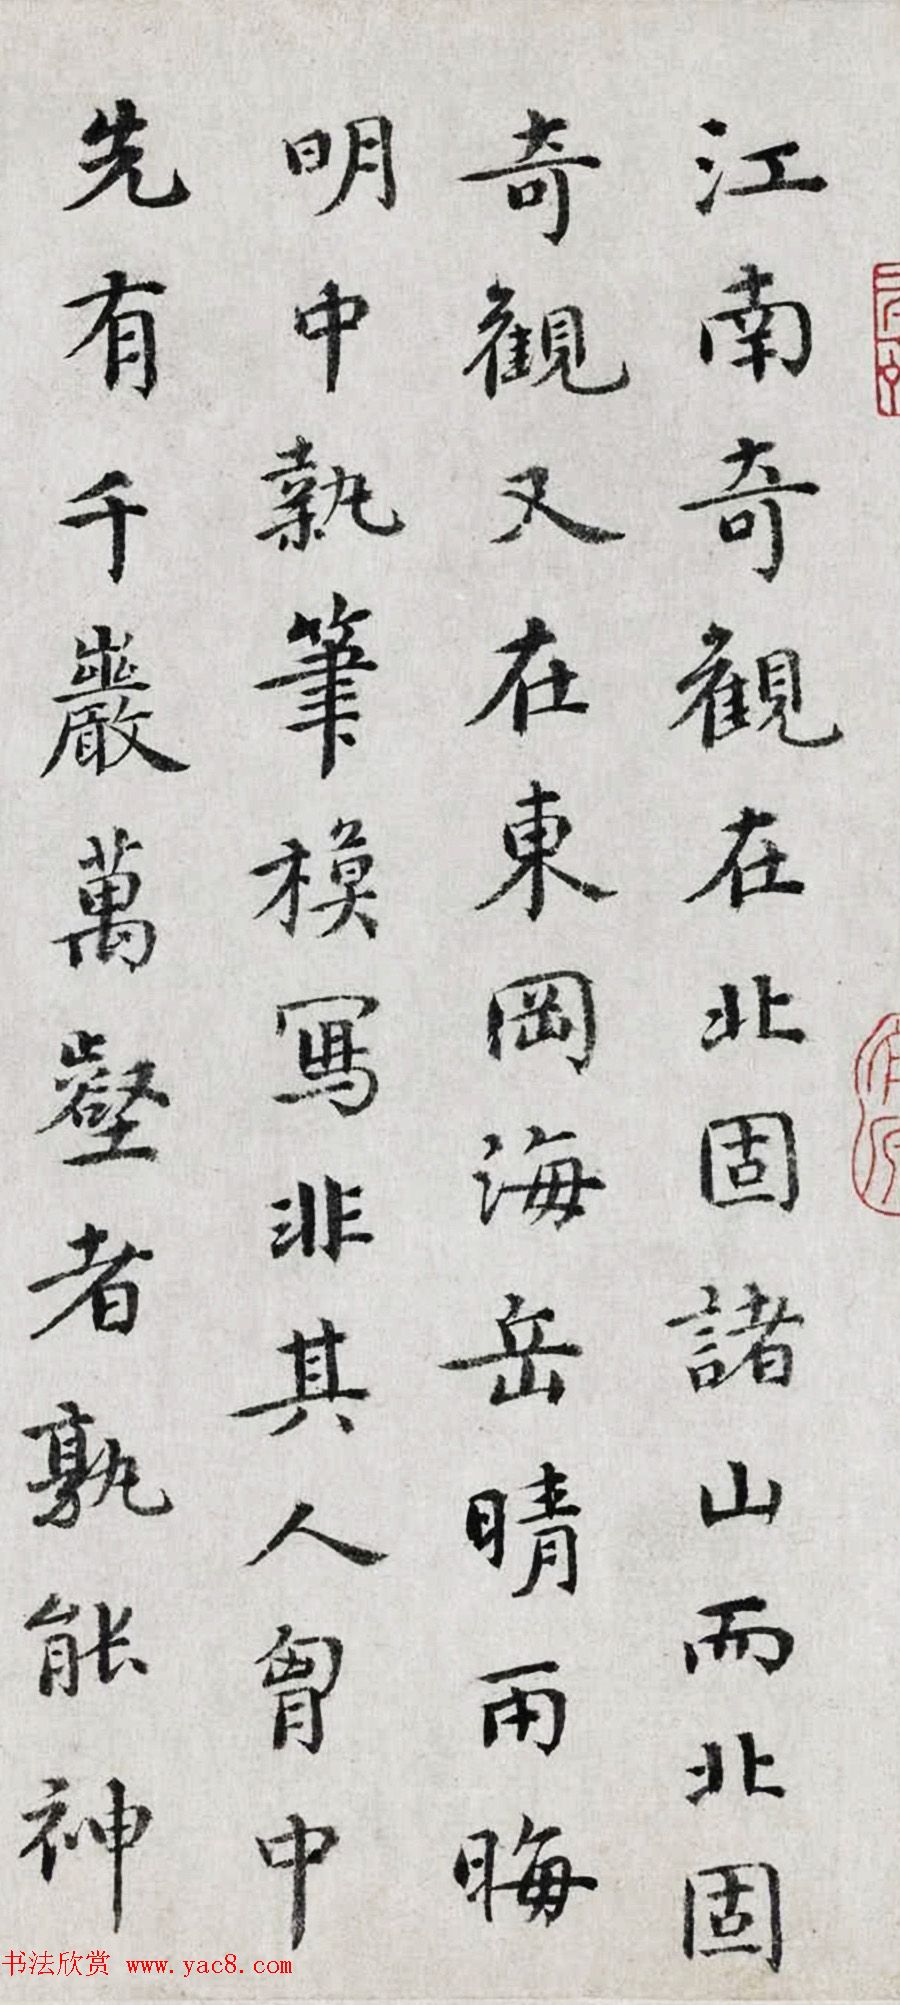 江南奇觀在北固諸山而北固
奇觀又在東岡海岳晴雨晦
明中執筆模寫非其人胷中
先有千巖萬壑者孰能神
书法欣赏 www.yac8.com